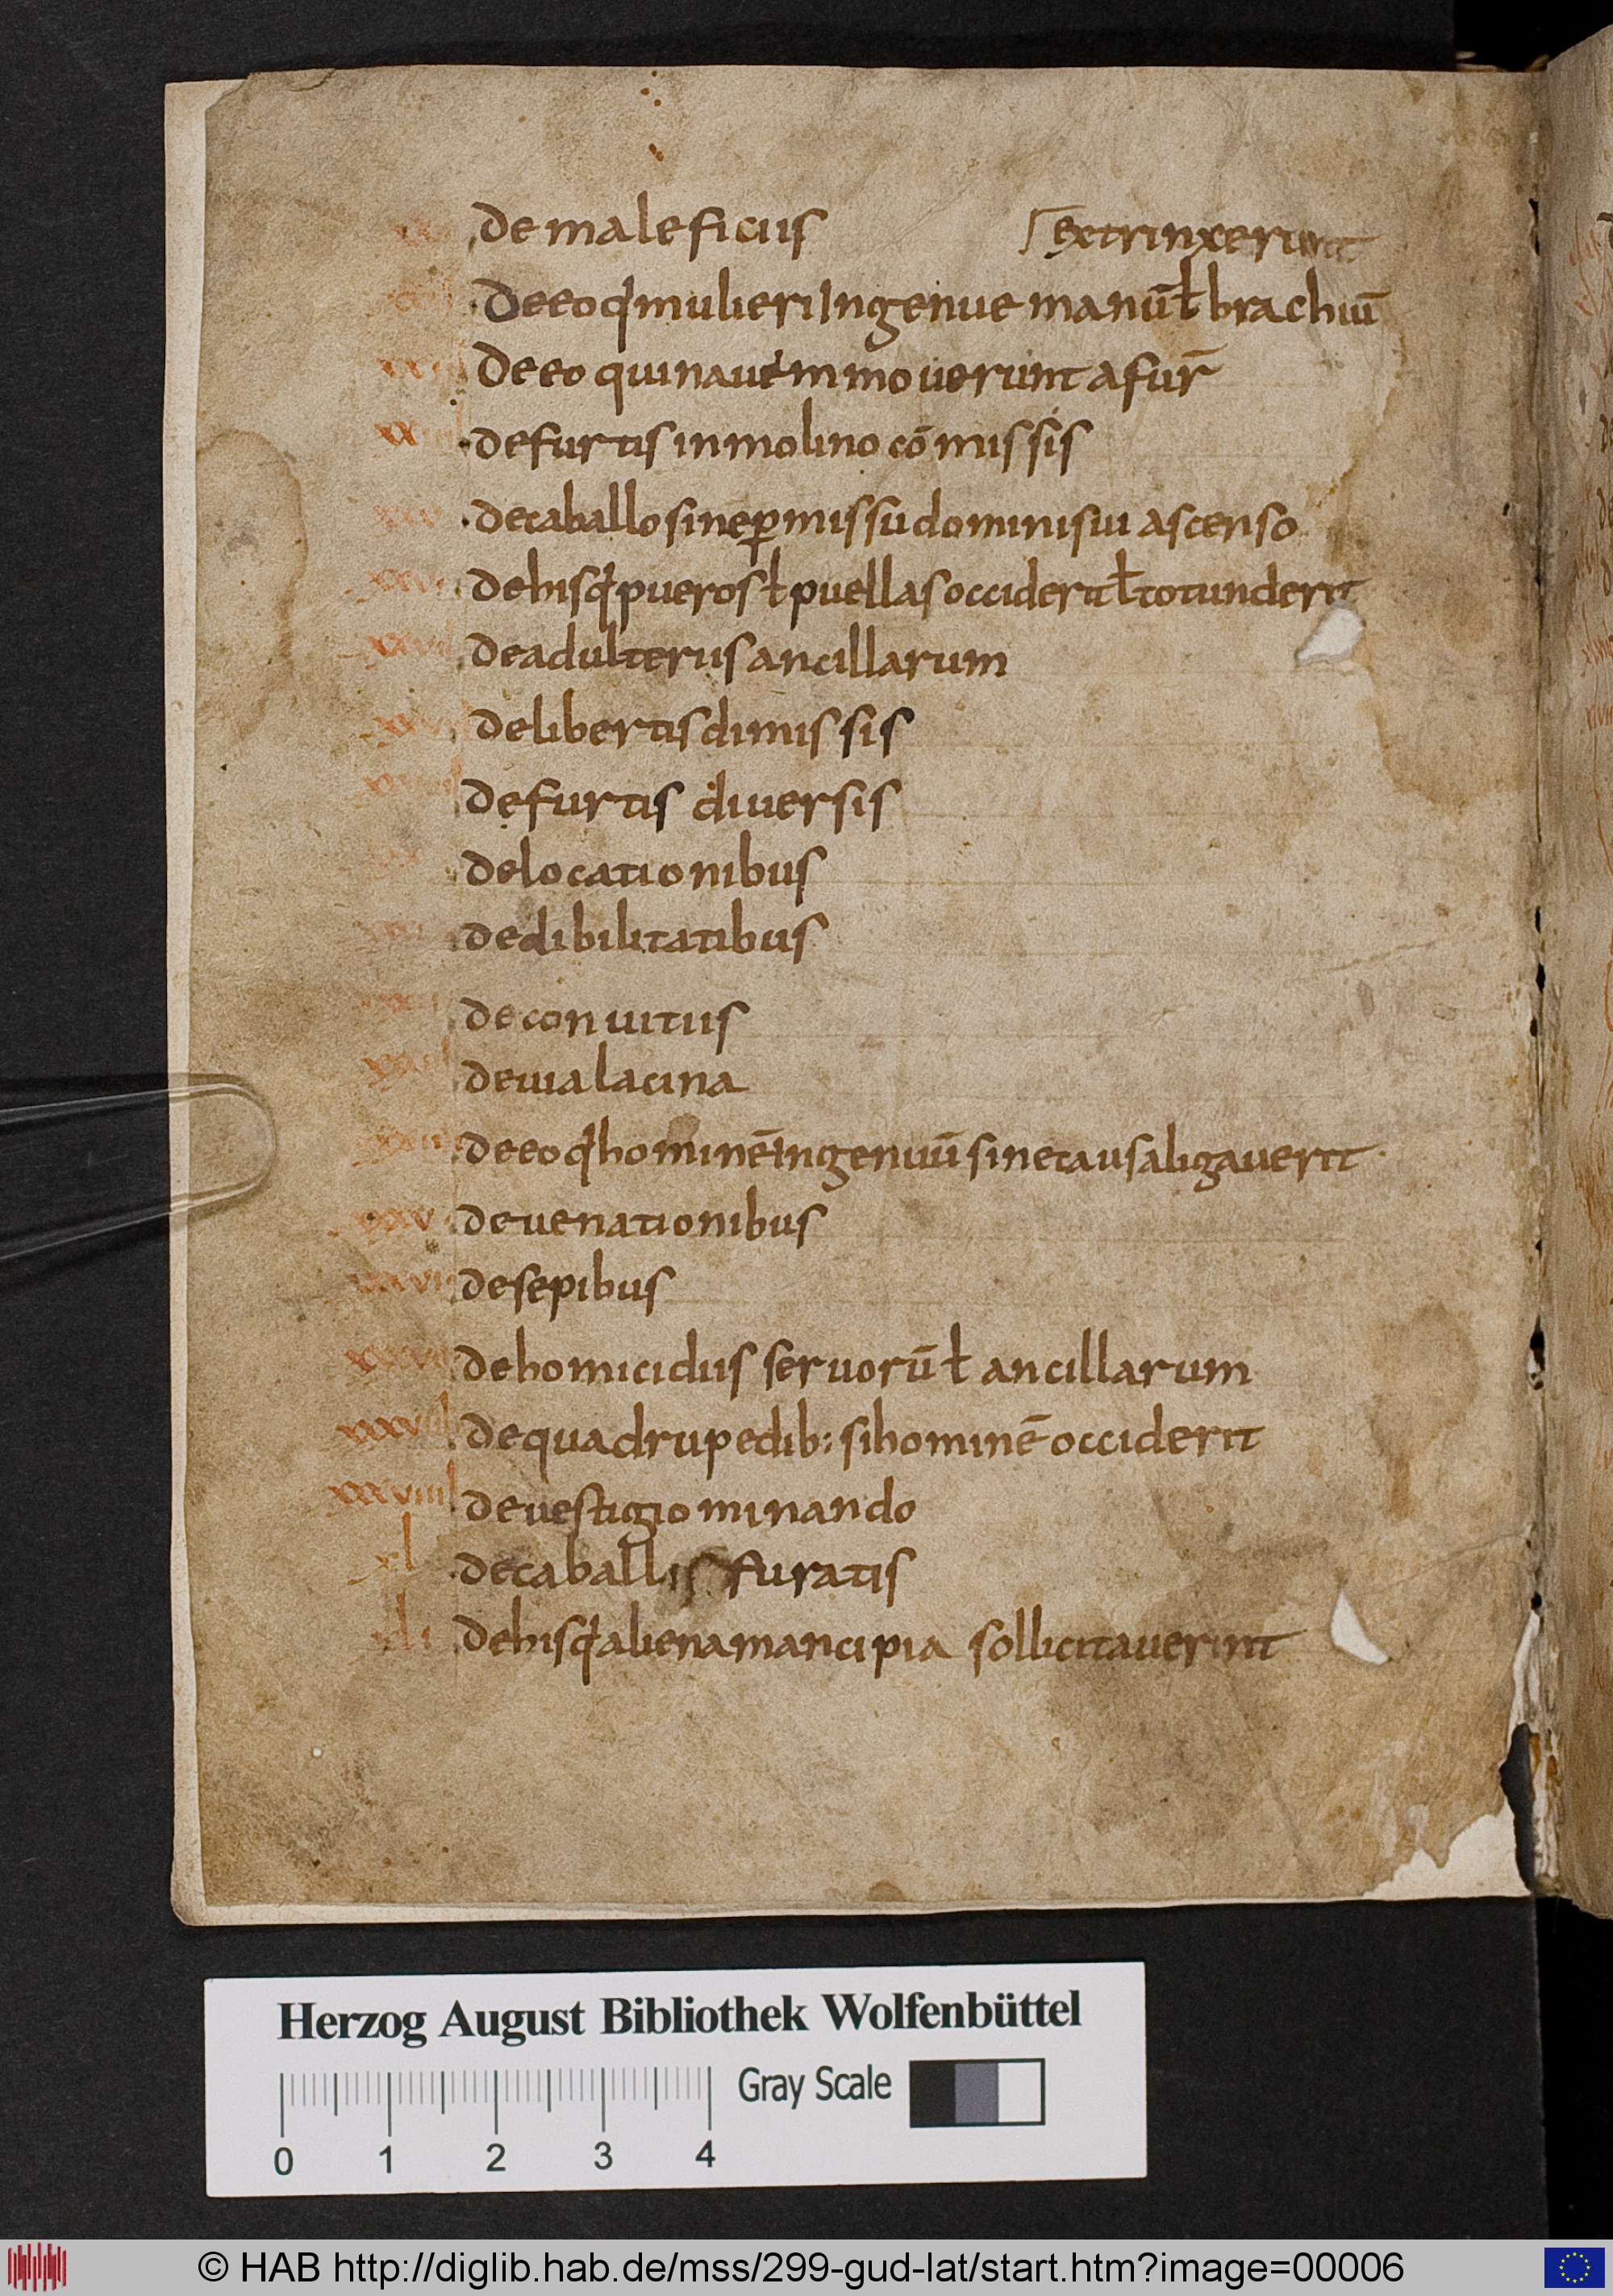 de maleficiis
extrinxerunt
xxii De eo q̄ mulieri Ingenue manū ł brachiū
xxiii De eo qui nauem moverunt a fur̄
xxiiii de furtis in molino cōmissis
xxv de caballo sine ꝑmissu domini sui ascenso
xxvi de his q̄ pueros ł puellas occiderit ł totunderit
xxvii de adulteriis ancillarum
xxviii de libertis dimissis
xxviiii de furtis diuersis
xxx de locationibus
xxxi de dibilitatibus
xxxii de conuitiis
xxxiii de uia lacina
xxxiiii de eo q̄ hominē ingenuū sine causa ligauerit
xxxv de uenationibus
xxxvi de sepibus
xxxvii de homicidiis seruorū ł ancillarum
xxxviii de quadrupedib: si hominē occiderit
xxxviiii de uestigio minando
xl de caballis furatis
xli de his q̄ aliena mancipia sollicitauerint
Herzog August Bibliothek Wolfenbüttel
Gray Scale
0 1 2 3 4
© HAB http://diglib.hab.de/mss/299-gud-lat/start.htm?image=00006